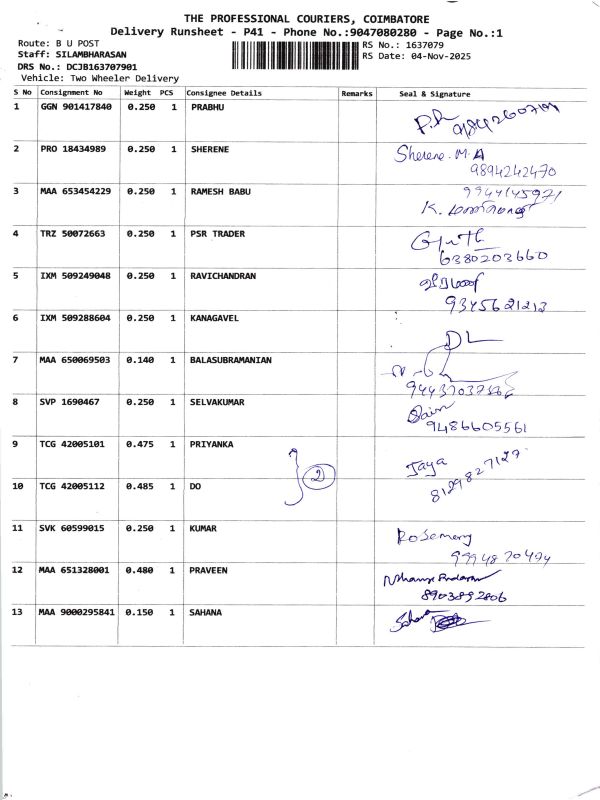 THE PROFESSIONAL COURIERS, COIMBATORE
Delivery Runsheet - P41 - Phone No.:9047080280 - Page No.:1
Route: B U POST
Staff: SILAMBHARASAN
DRS No.: DCJB163707901
Vehicle: Two Wheeler Delivery
RS No.: 1637079
RS Date: 04-Nov-2025
S No Consignment No Weight PCS Consignee Details Remarks Seal & Signature
1 GGN 901417840 0.250 1 PRABHU
2 PRO 18434989 0.250 1 SHERENE Sherene.M.A
9894242470
3 MAA 653454229 0.250 1 RAMESH BABU 9944145971
K.
4 TRZ 50072663 0.250 1 PSR TRADER
6380203660
5 IXM 509249048 0.250 1 RAVICHANDRAN
9345621213
6 IXM 509288604 0.250 1 KANAGAVEL DL
7 MAA 650069503 0.140 1 BALASUBRAMANIAN
8 SVP 1690467 0.250 1 SELVAKUMAR
9486605561
9 TCG 42005101 0.475 1 PRIYANKA Jaya
8129827127
10 TCG 42005112 0.485 1 DO 2
11 SVK 60599015 0.250 1 KUMAR Rosemery
9994870494
12 MAA 651328001 0.480 1 PRAVEEN
8903892806
13 MAA 9000295841 0.150 1 SAHANA Sahana